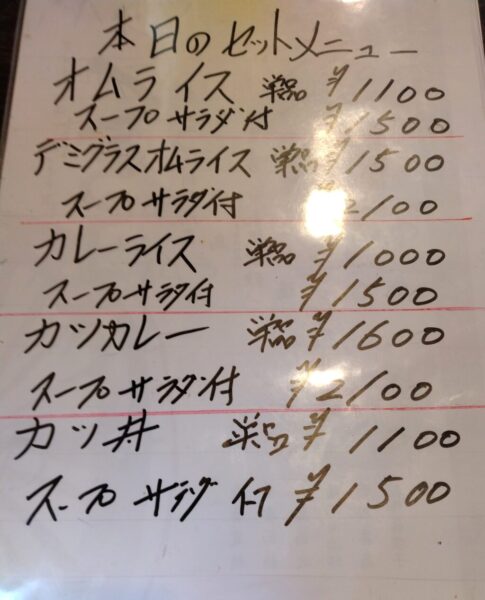 本日のセットメニュー
オムライス 単品 ¥1100
スープ サラダ付 ¥1500
デミグラスオムライス 単品 ¥1500
スープ サラダ付 ¥2100
カレーライス 単品 ¥1000
スープ サラダ付 ¥1500
カツカレー 単品 ¥1600
スープ サラダ付 ¥2100
カツ丼 単品 ¥1100
スープ サラダ 付 ¥1500